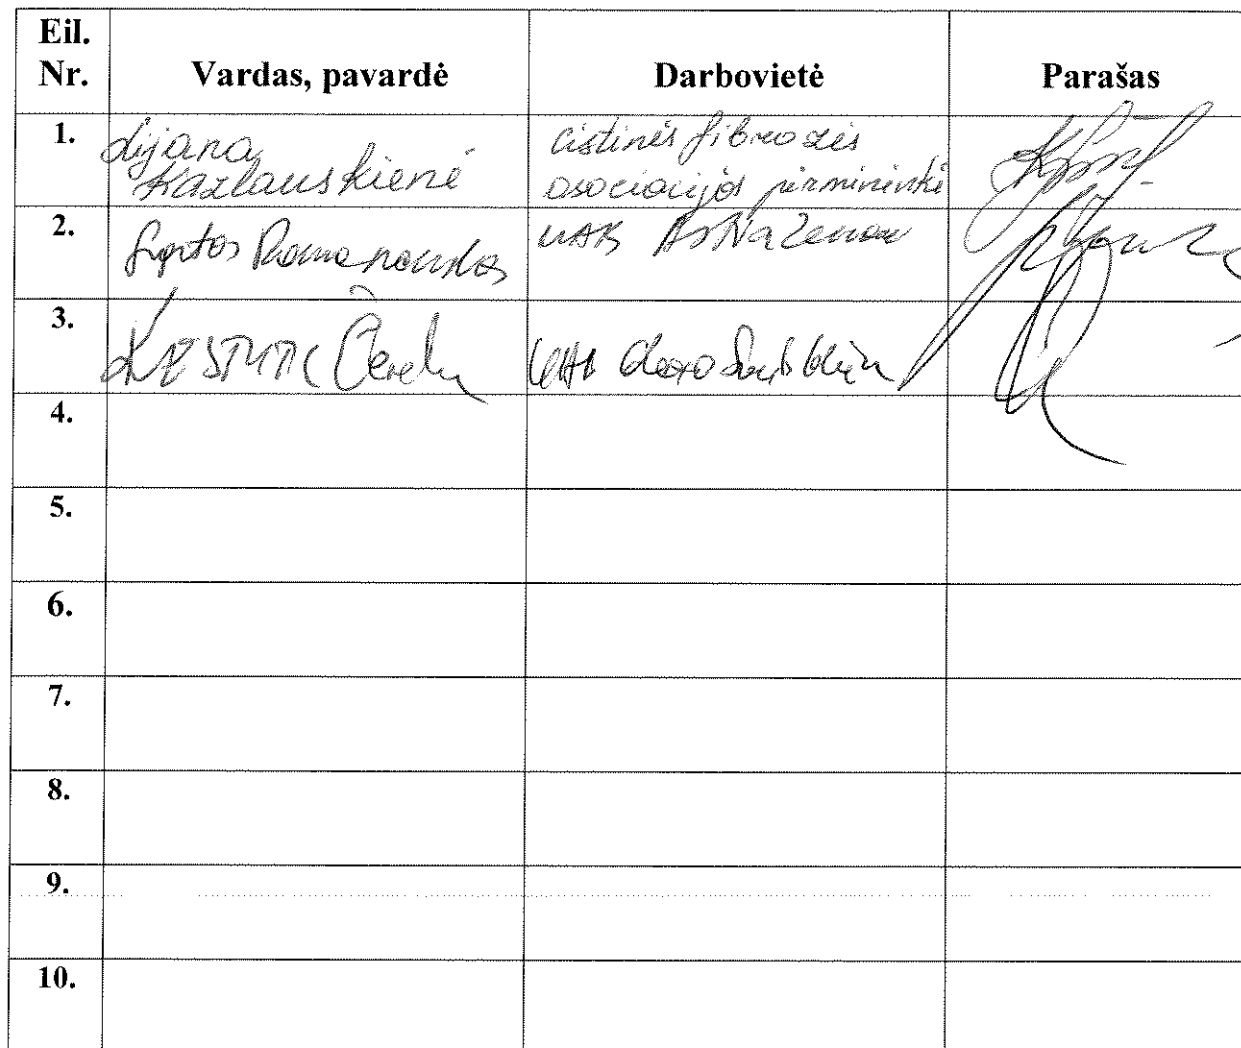 Eil.
Nr.
Vardas, pavardė
Darbovietė
Parašas
1.
Lijana
Kazlauskienė
cistinės fibrozės
asociacijos pirmininkė
2.
Romanauskas
UAB AstraZeneca
3.
UAB
4.
5.
6.
7.
8.
9.
10.